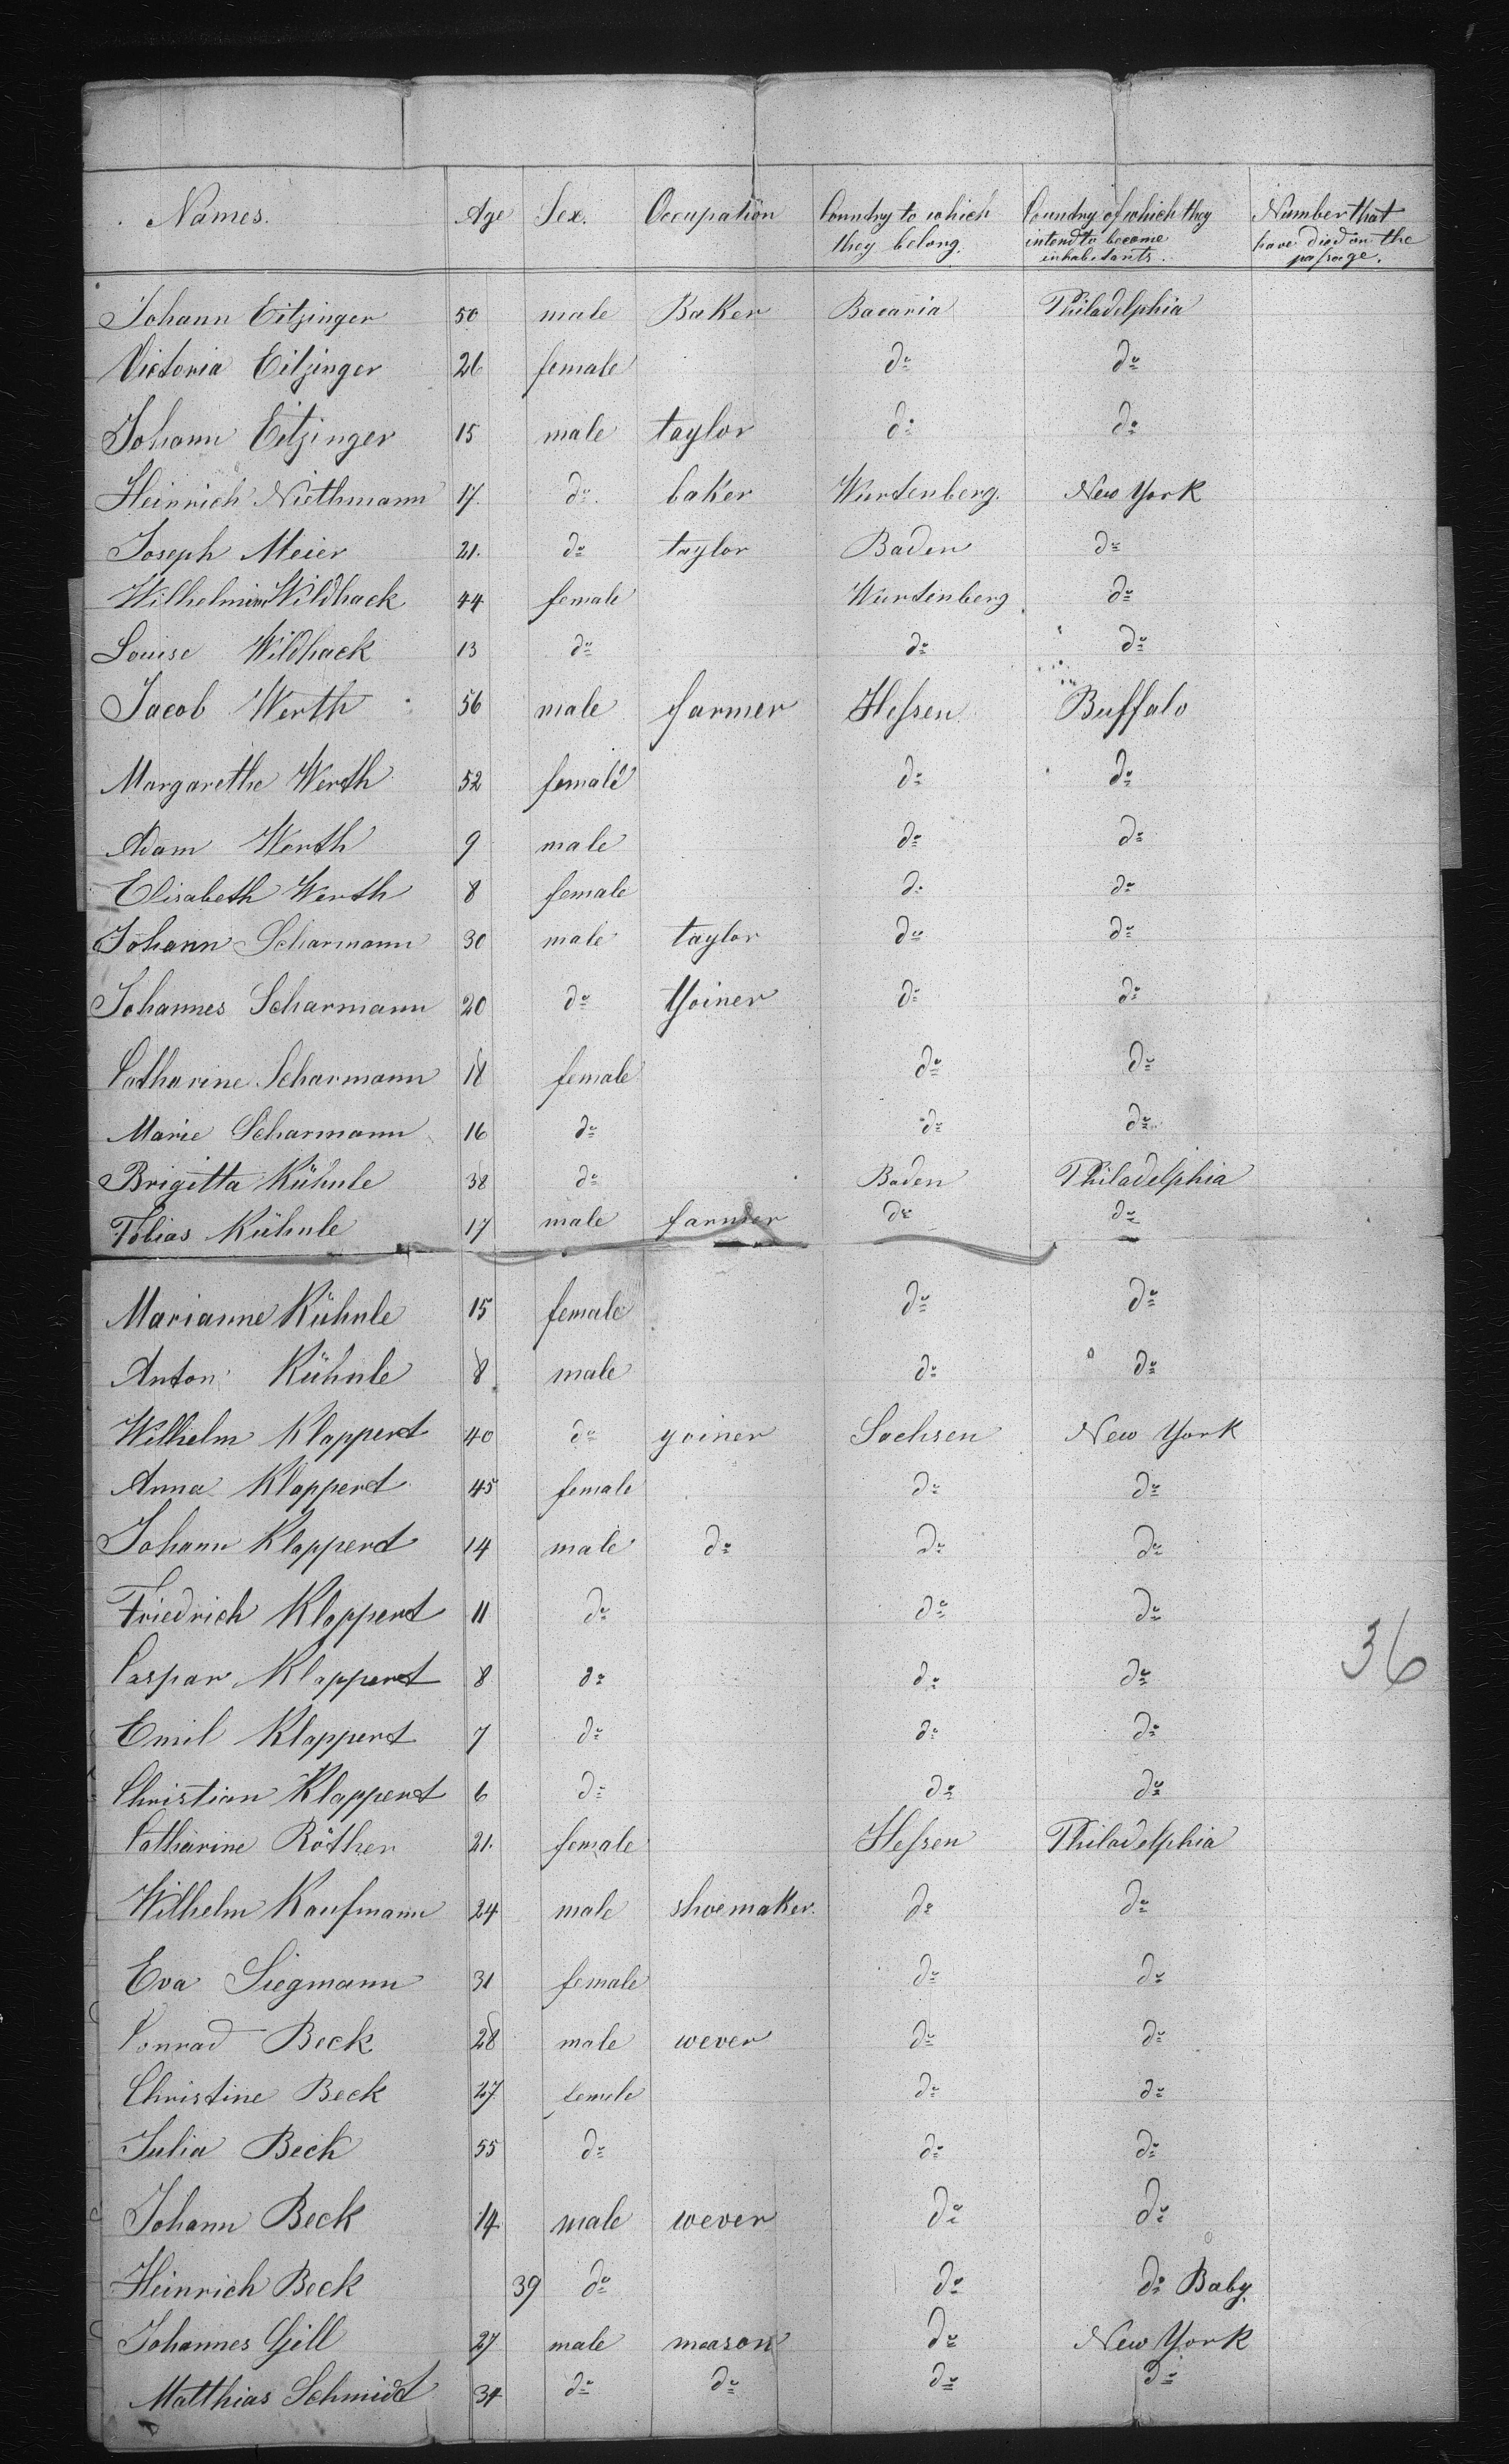 Names. Age Sex. Occupation Country to which they belong. Country of which they intend to become inhabitants. Number that have died on the passage.
Johann Eitzinger 50 male Baker Bavaria Philadelphia
Victoria Eitzinger 26 female do do
Johann Eitzinger 15 male taylor do do
Heinrich Niethmann 17. do. baker Wurtenberg. New York
Joseph Meier 21. do taylor Baden do
Wilhelmine Wildhack 44 female Wurtenberg do
Louise Wildhack 13 do do do
Jacob Werth 56 male farmer Hessen Buffalo
Margarethe Werth 52 female do do
Adam Werth 9 male do do
Elisabeth Werth 8 female do do
Johann Scharmann 30 male taylor do do
Johannes Scharmann 20 do Yoiner do do
Catharine Scharmann 18 female do do
Marie Scharmann 16 do do do
Brigitta Kühnle 38 do Baden Philadelphia
Tobias Kühnle 17 male farmer do do
Marianne Kühnle 15 female do do
Anton Kühnle 8 male do do
Wilhelm Klappert 40 do yoiner Sachsen New York
Anna Klappert 45 female do do
Johann Klappert 14 male do do do
Friedrich Klappert 11 do do do
Caspar Klappert 8 do do do 36
Emil Klappert 7 do do do
Christian Klappert 6 do do do
Catharine Röther 21. female Hessen Philadelphia
Wilhelm Kaufmann 24 male shoemaker. do do
Eva Siegmann 31 female do do
Conrad Beck 28 male wever do do
Christine Beck 27 female do do
Julia Beck 55 do do do
Johann Beck 14 male wever do do
Heinrich Beck 39 do do do Baby
Johannes Gill 27 male meason do New York
Matthias Schmidt 34 do do do do